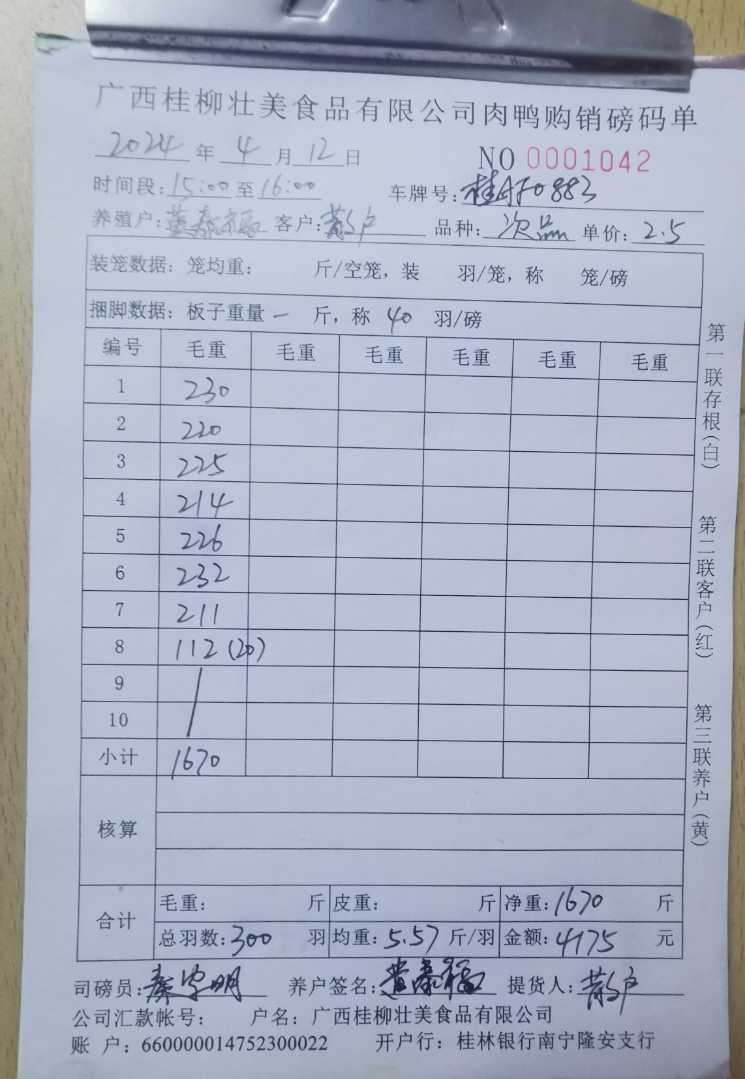 广西桂柳壮美食品有限公司肉鸭购销磅码单
2024 年 4 月 12 日 NO 0001042
时间段: 15:00 至 16:00 车牌号: 桂AF0883
养殖户: 黄泰福 客户: 散户 品种: 次品 单价: 2.5
装笼数据: 笼均重: 斤/空笼, 装 羽/笼, 称 笼/磅
捆脚数据: 板子重量 一 斤, 称 40 羽/磅
编号 毛重 毛重 毛重 毛重 毛重 毛重
1 230
2 220
3 225
4 214
5 226
6 232
7 211
8 112 (20)
9
10
小计 1670
核算
合计 毛重: 斤 皮重: 斤 净重: 1670 斤
总羽数: 300 羽 均重: 5.57 斤/羽 金额: 4175 元
司磅员: 明 养户签名: 黄泰福 提货人: 散户
公司汇款帐号: 户名: 广西桂柳壮美食品有限公司
账 户: 660000014752300022 开户行: 桂林银行南宁隆安支行
第一联存根(白)
第二联客户(红)
第三联养户(黄)